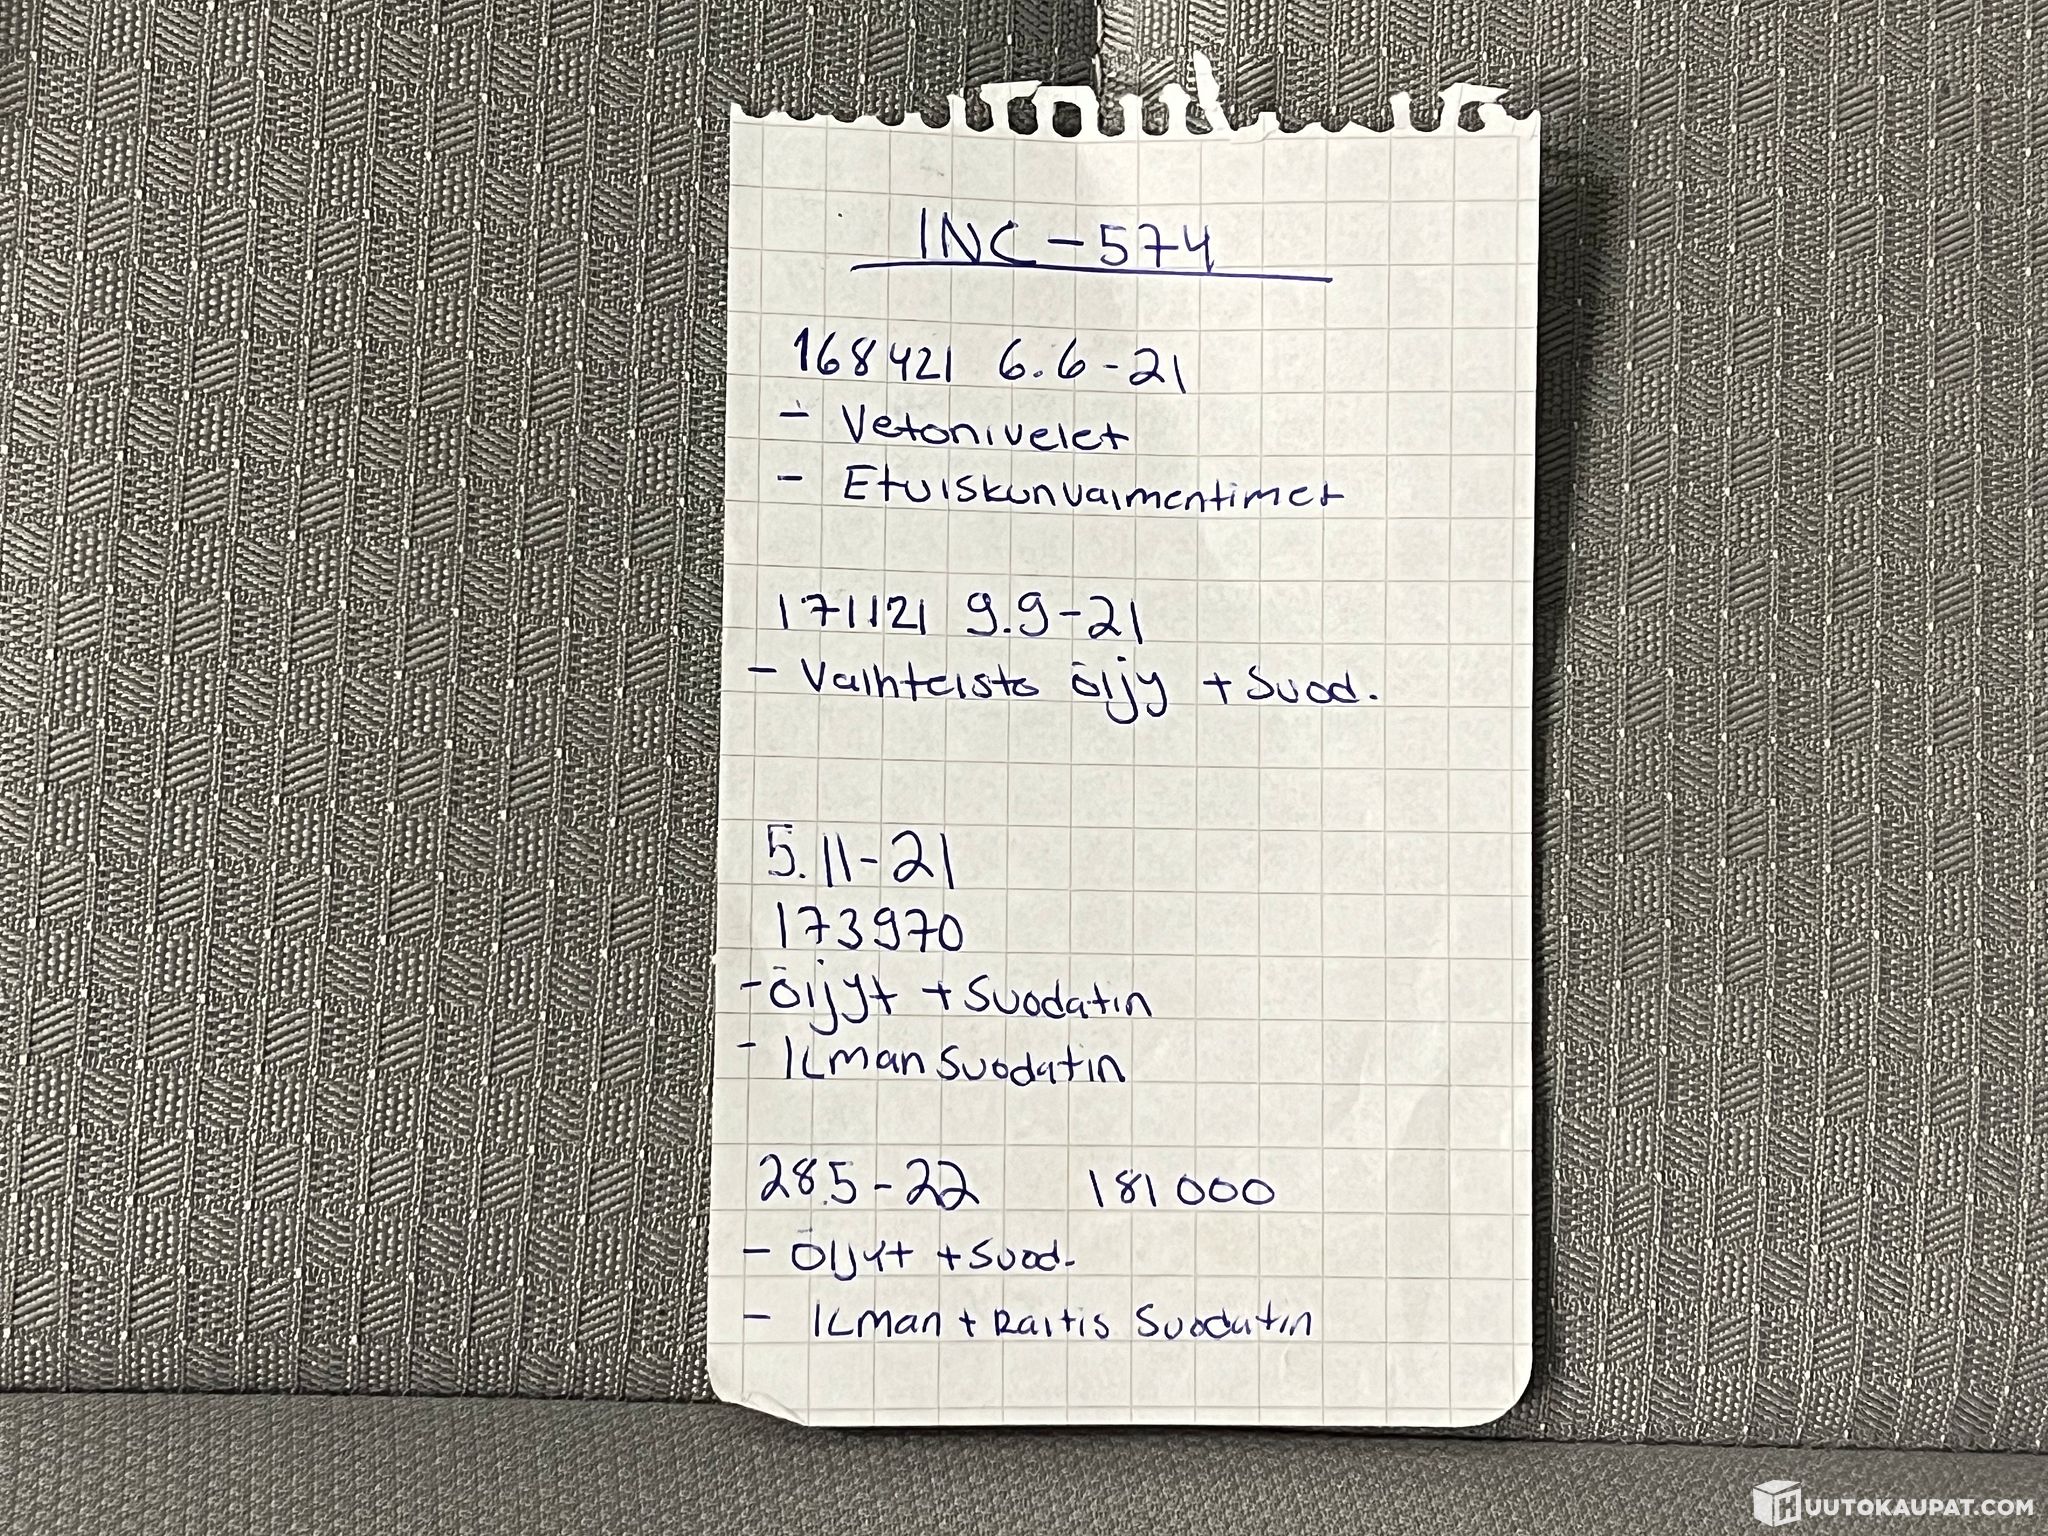 INC-574
168421 6.6-21
- Vetonivelet
- Etuiskunvaimentimet
171121 9.9-21
- Vaihteisto öijy + Suod.
5.11-21
173970
- Öijyt + Suodatin
- Ilman Suodatin
28.5-22 181000
- Öljyt + Suod.
- Ilman + Raitis Suodatin
HUUTOKAUPAT.COM